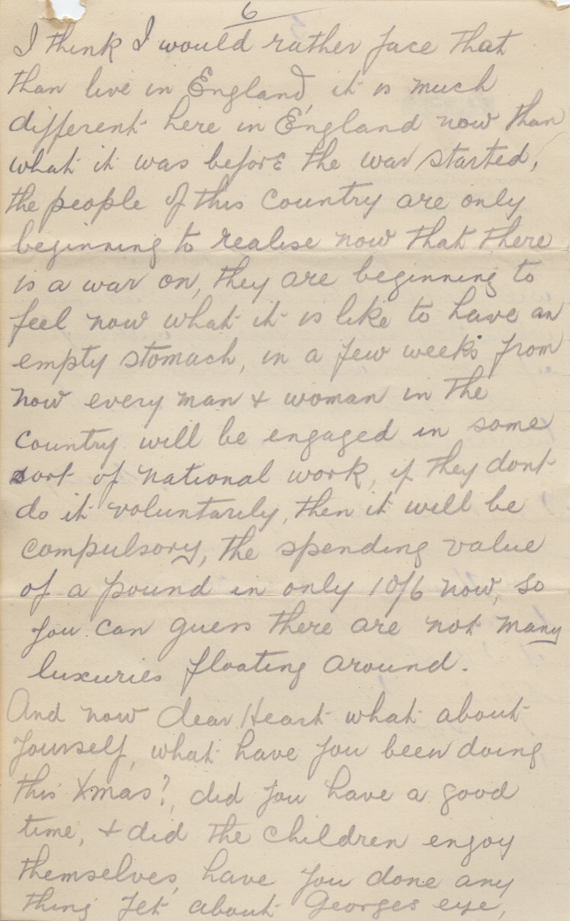 6
I think I would rather face that
than live in England, it is much
different here in England now than
what it was before the war started,
the people of this Country are only
beginning to realise now that there
is a war on, they are beginning to
feel now what it is like to have an
empty stomach, in a few weeks from
now every man & woman in the
country will be engaged in some
sort of national work, if they dont
do it voluntarily, then it will be
compulsory, the spending value
of a pound in only 10/6 now, so
you can guess there are not many
luxuries floating around.
And now dear Heart what about
yourself, what have you been doing
this Xmas?, did you have a good
time, & did the children enjoy
themselves, have you done any
thing yet about Georges eye